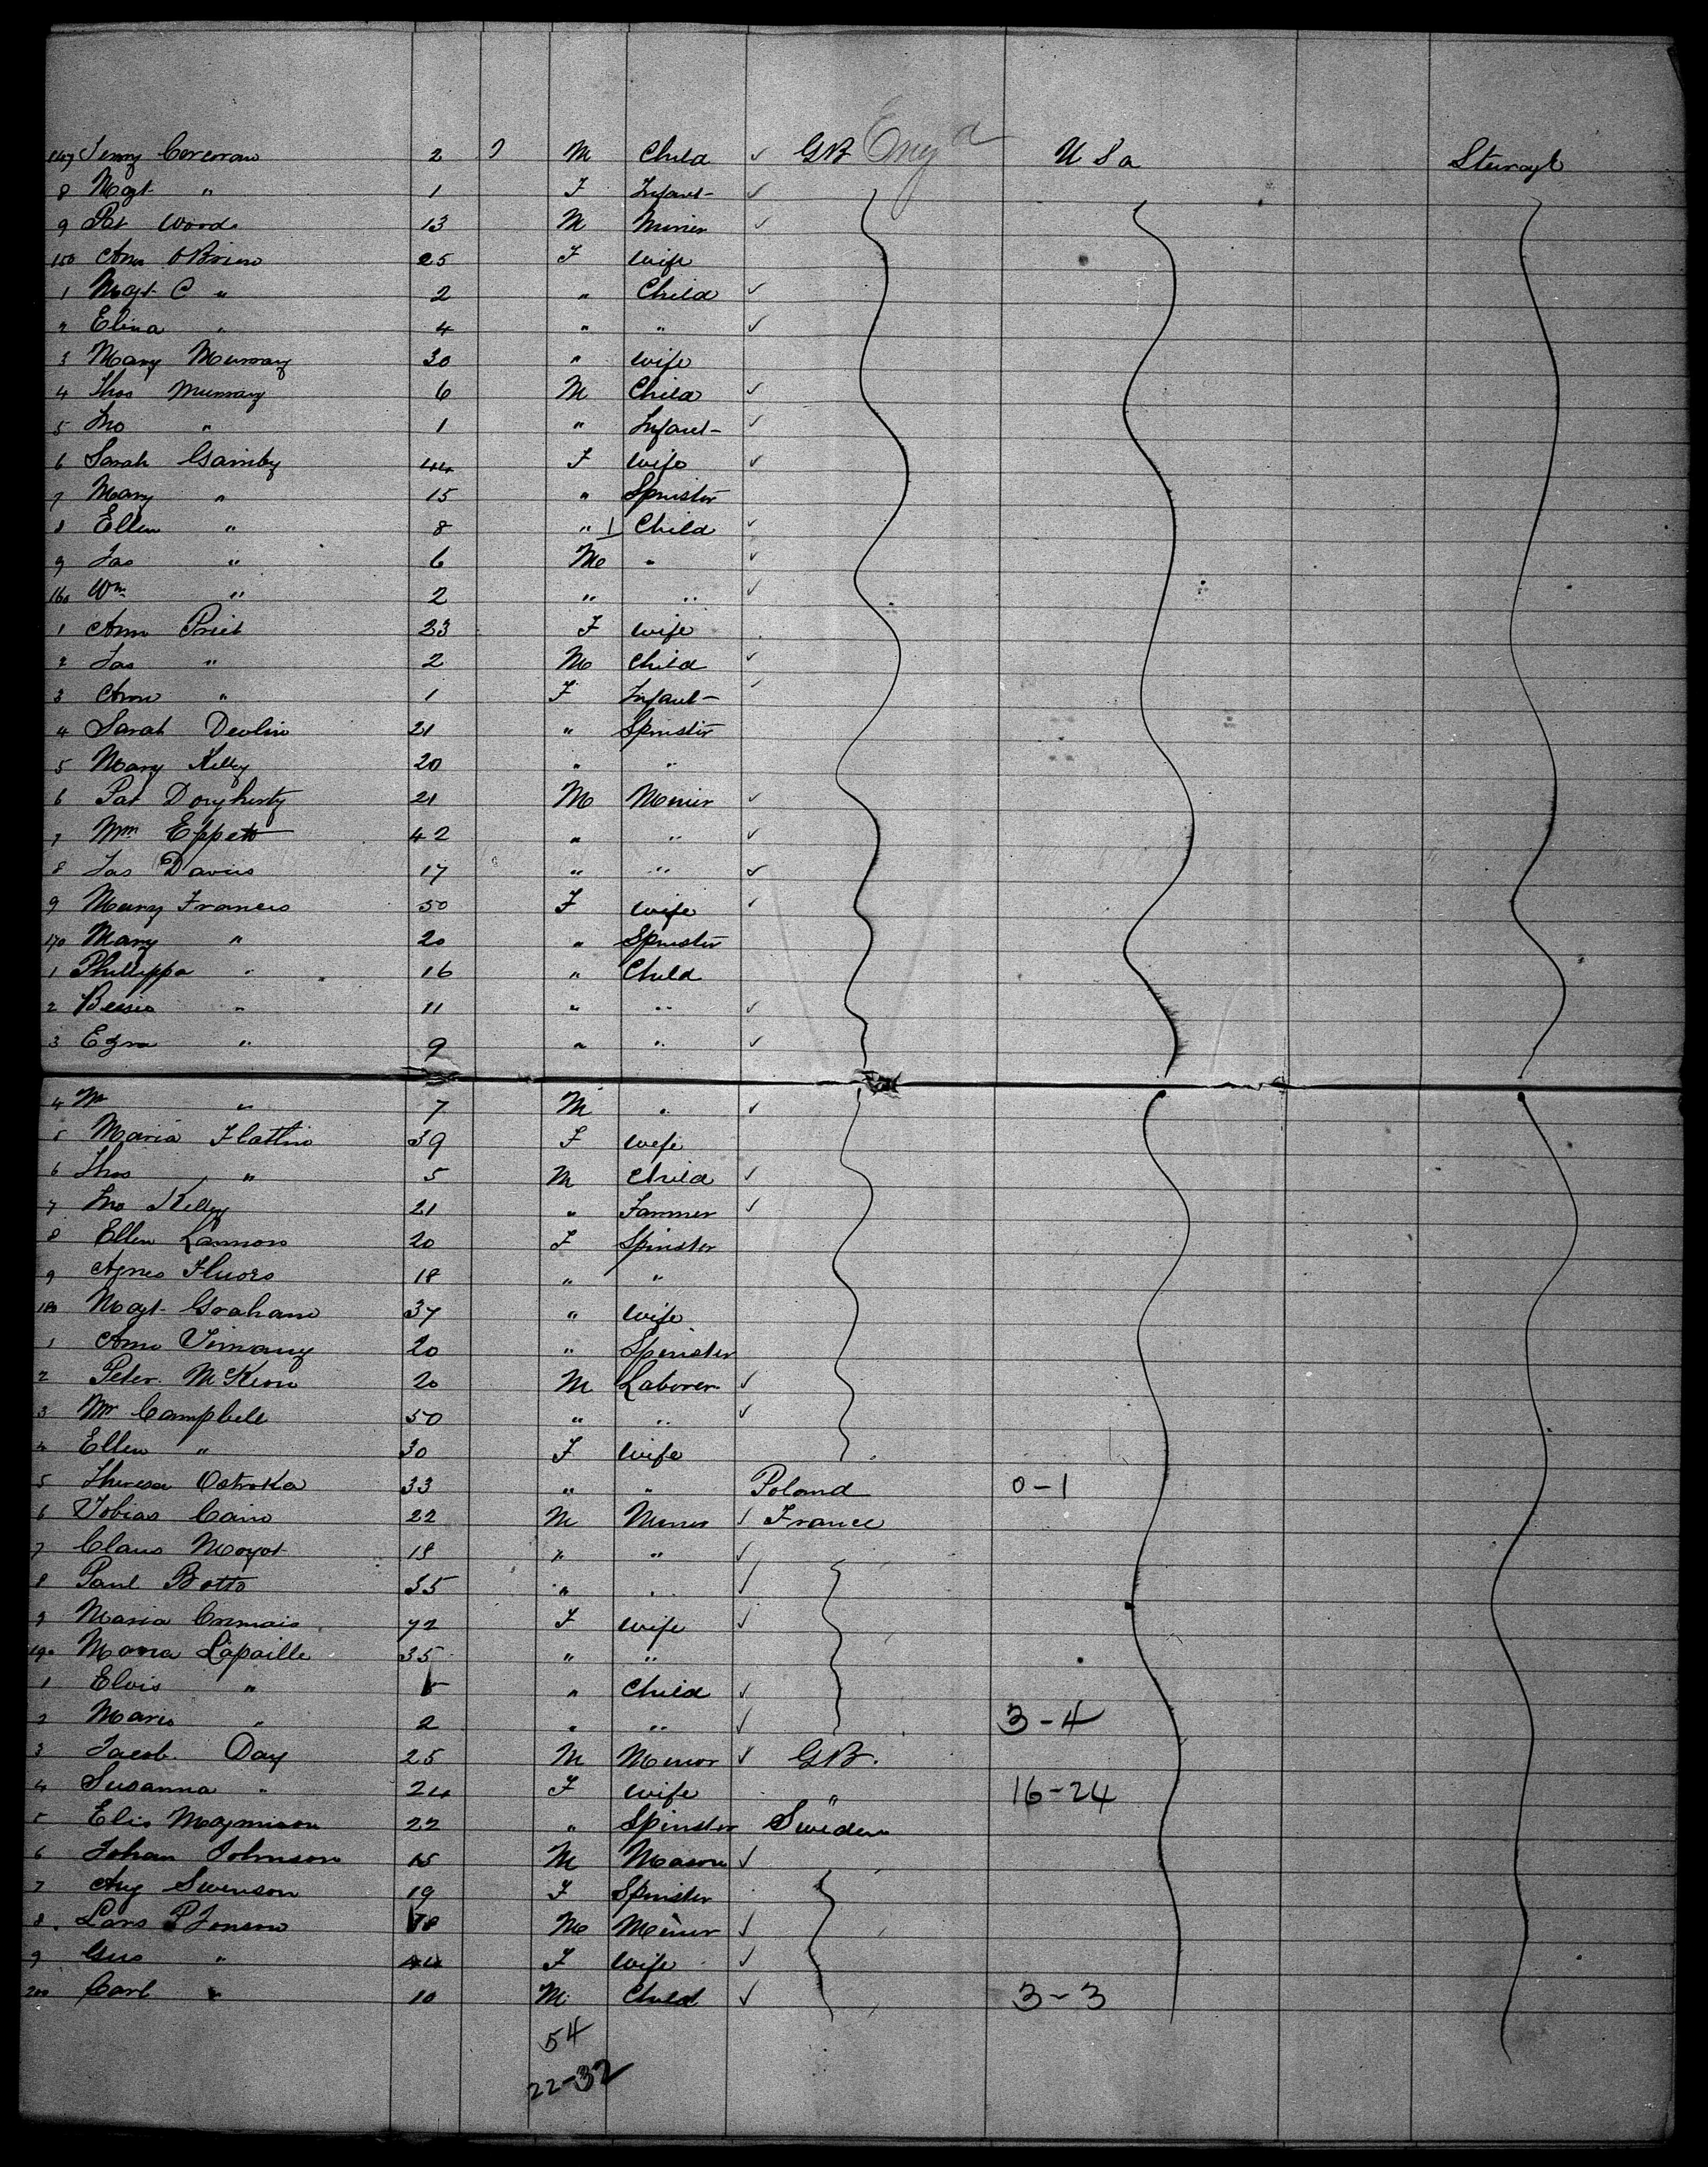 147 Corcoran 2 M Child ✓ GB Eng d U S a
8 Mgt " 1 F Infant ✓
9 Pat Woods 13 M Miner ✓
150 Ann OBrien 25 F Wife
1 Mgt C " 2 " Child ✓
2 Elina " 4 " " ✓
3 Mary Murray 30 " Wife
4 Thos Murray 6 M Child ✓
5 Jno " 1 " Infant ✓
6 Sarah Gamby 44 F Wife ✓
7 Mary " 15 " Spinster
8 Ellen " 8 " 1 Child ✓
9 Jas " 6 M " ✓
160 Wm " 2 " " ✓
1 Ann 23 F Wife
2 Jas " 2 M Child ✓
3 Ann " 1 F Infant ✓
4 Sarah Devlin 21 " Spinster
5 Mary Kelly 20 " "
6 Pat Dougherty 21 M Miner ✓
7 Wm 42 " " ✓
8 Jas Davies 17 " " ✓
9 Mary Francis 50 F Wife ✓
170 Mary " 20 " Spinster
1 Phillippa " 16 " Child
2 Bessie " 11 " " ✓
3 Ezra " 9 " " ✓
4 Wm " 7 M " ✓
5 Maria 39 F Wife
6 Thos " 5 M Child ✓
7 Jno Kelly 21 " Farmer ✓
8 Ellen 20 F Spinster
9 Agnes 18 " "
180 Magt Graham 37 " Wife
1 Ann 20 " Spinster
2 Peter McKeon 20 M Laborer ✓
3 Wm Campbell 50 " " ✓
4 Ellen " 30 F Wife
5 Theresa Ostroka 33 " " Poland 0-1
6 Tobias 22 M Miner ✓ France
7 Claus 18 " " ✓
8 Paul Botto 35 " " ✓
9 Maria 72 F Wife ✓
190 Maria Lapaille 35 " "
1 " " Child ✓
2 Marie " 2 " " ✓ 3-4
3 Jacob Day 25 M Miner ✓ GB.
4 Susanna " 24 F Wife " 16-24
5 Elis 22 " Spinster Sweden
6 Johan Johnson 15 M Mason ✓
7 Aug Swenson 19 F Spinster
8 Lars P Jonson M Miner ✓
9 Gus " 44 F Wife ✓
200 Carl " 10 M Child ✓ 3-3
54
22-32